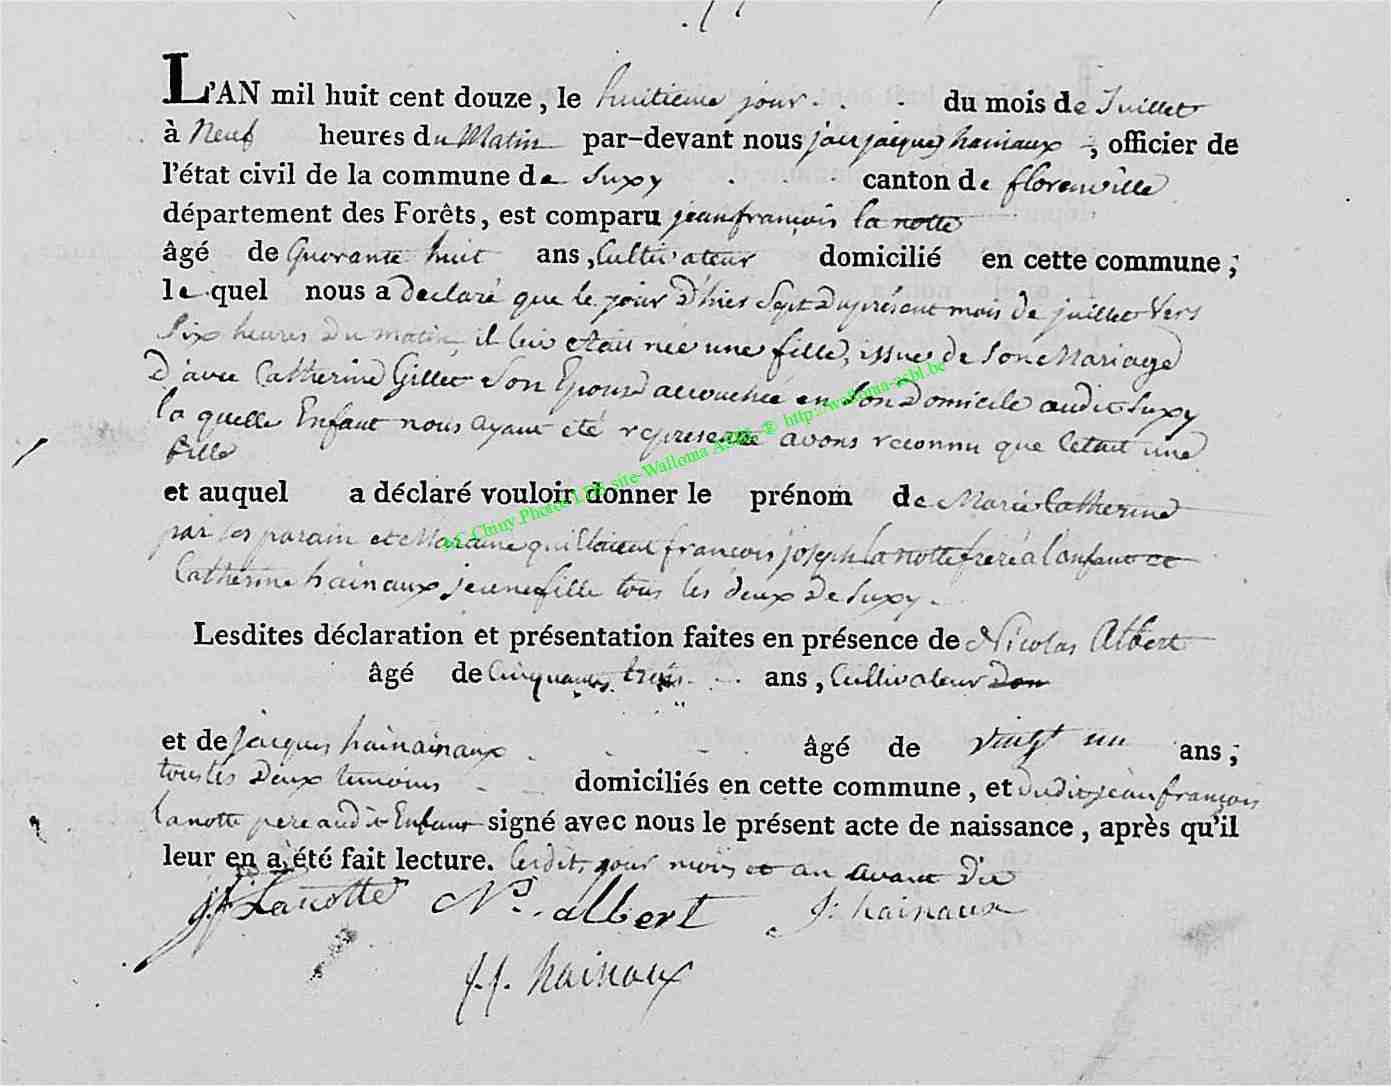 L'AN mil huit cent douze, le huitieme jour . . . du mois de Juillet
à Neuf heures du Matin par-devant nous jan jacques hainaux , officier de
l'état civil de la commune de Suxy . . . canton de florenville
département des Forêts, est comparu jean françois la notte
âgé de Quorante huit ans, Cultivateur domicilié en cette commune ;
le quel nous a declaré que le jour d'hier Sept du présent mois de juillet Vers
Six heures du matin, il lui etait née une fille, issue de Son Mariage
D'avec Catherine Gillet Son Epouse accouchée en Son Domicile audit Suxy
la quelle Enfant nous ayant été representé avons reconnu que C'etait une
fille
et auquel a déclaré vouloir donner le prénom de Marie Catherine
par ses parain et Maraine qui Etaient françois joseph la notte frere a l'enfant et
Catherine hainaux jeune fille tous les deux de Suxy.
Lesdites déclaration et présentation faites en présence de Nicolas Albert
âgé de Cinquante trois ans, Cultivateur
et de jacques hainainaux . . . âgé de vingt un ans ;
tous les Deux temoins . . domiciliés en cette commune, et dudit jean françois
lanotte pere audit Enfant signé avec nous le présent acte de naissance, après qu'il
leur en a été fait lecture. lesdits jour mois et an avant Dit
j f Lanotte N. albert J: hainaux
j.j. hainaux
AC Chiny Photos LDB site-Walloma ASBL ® http://walloma-asbl.be